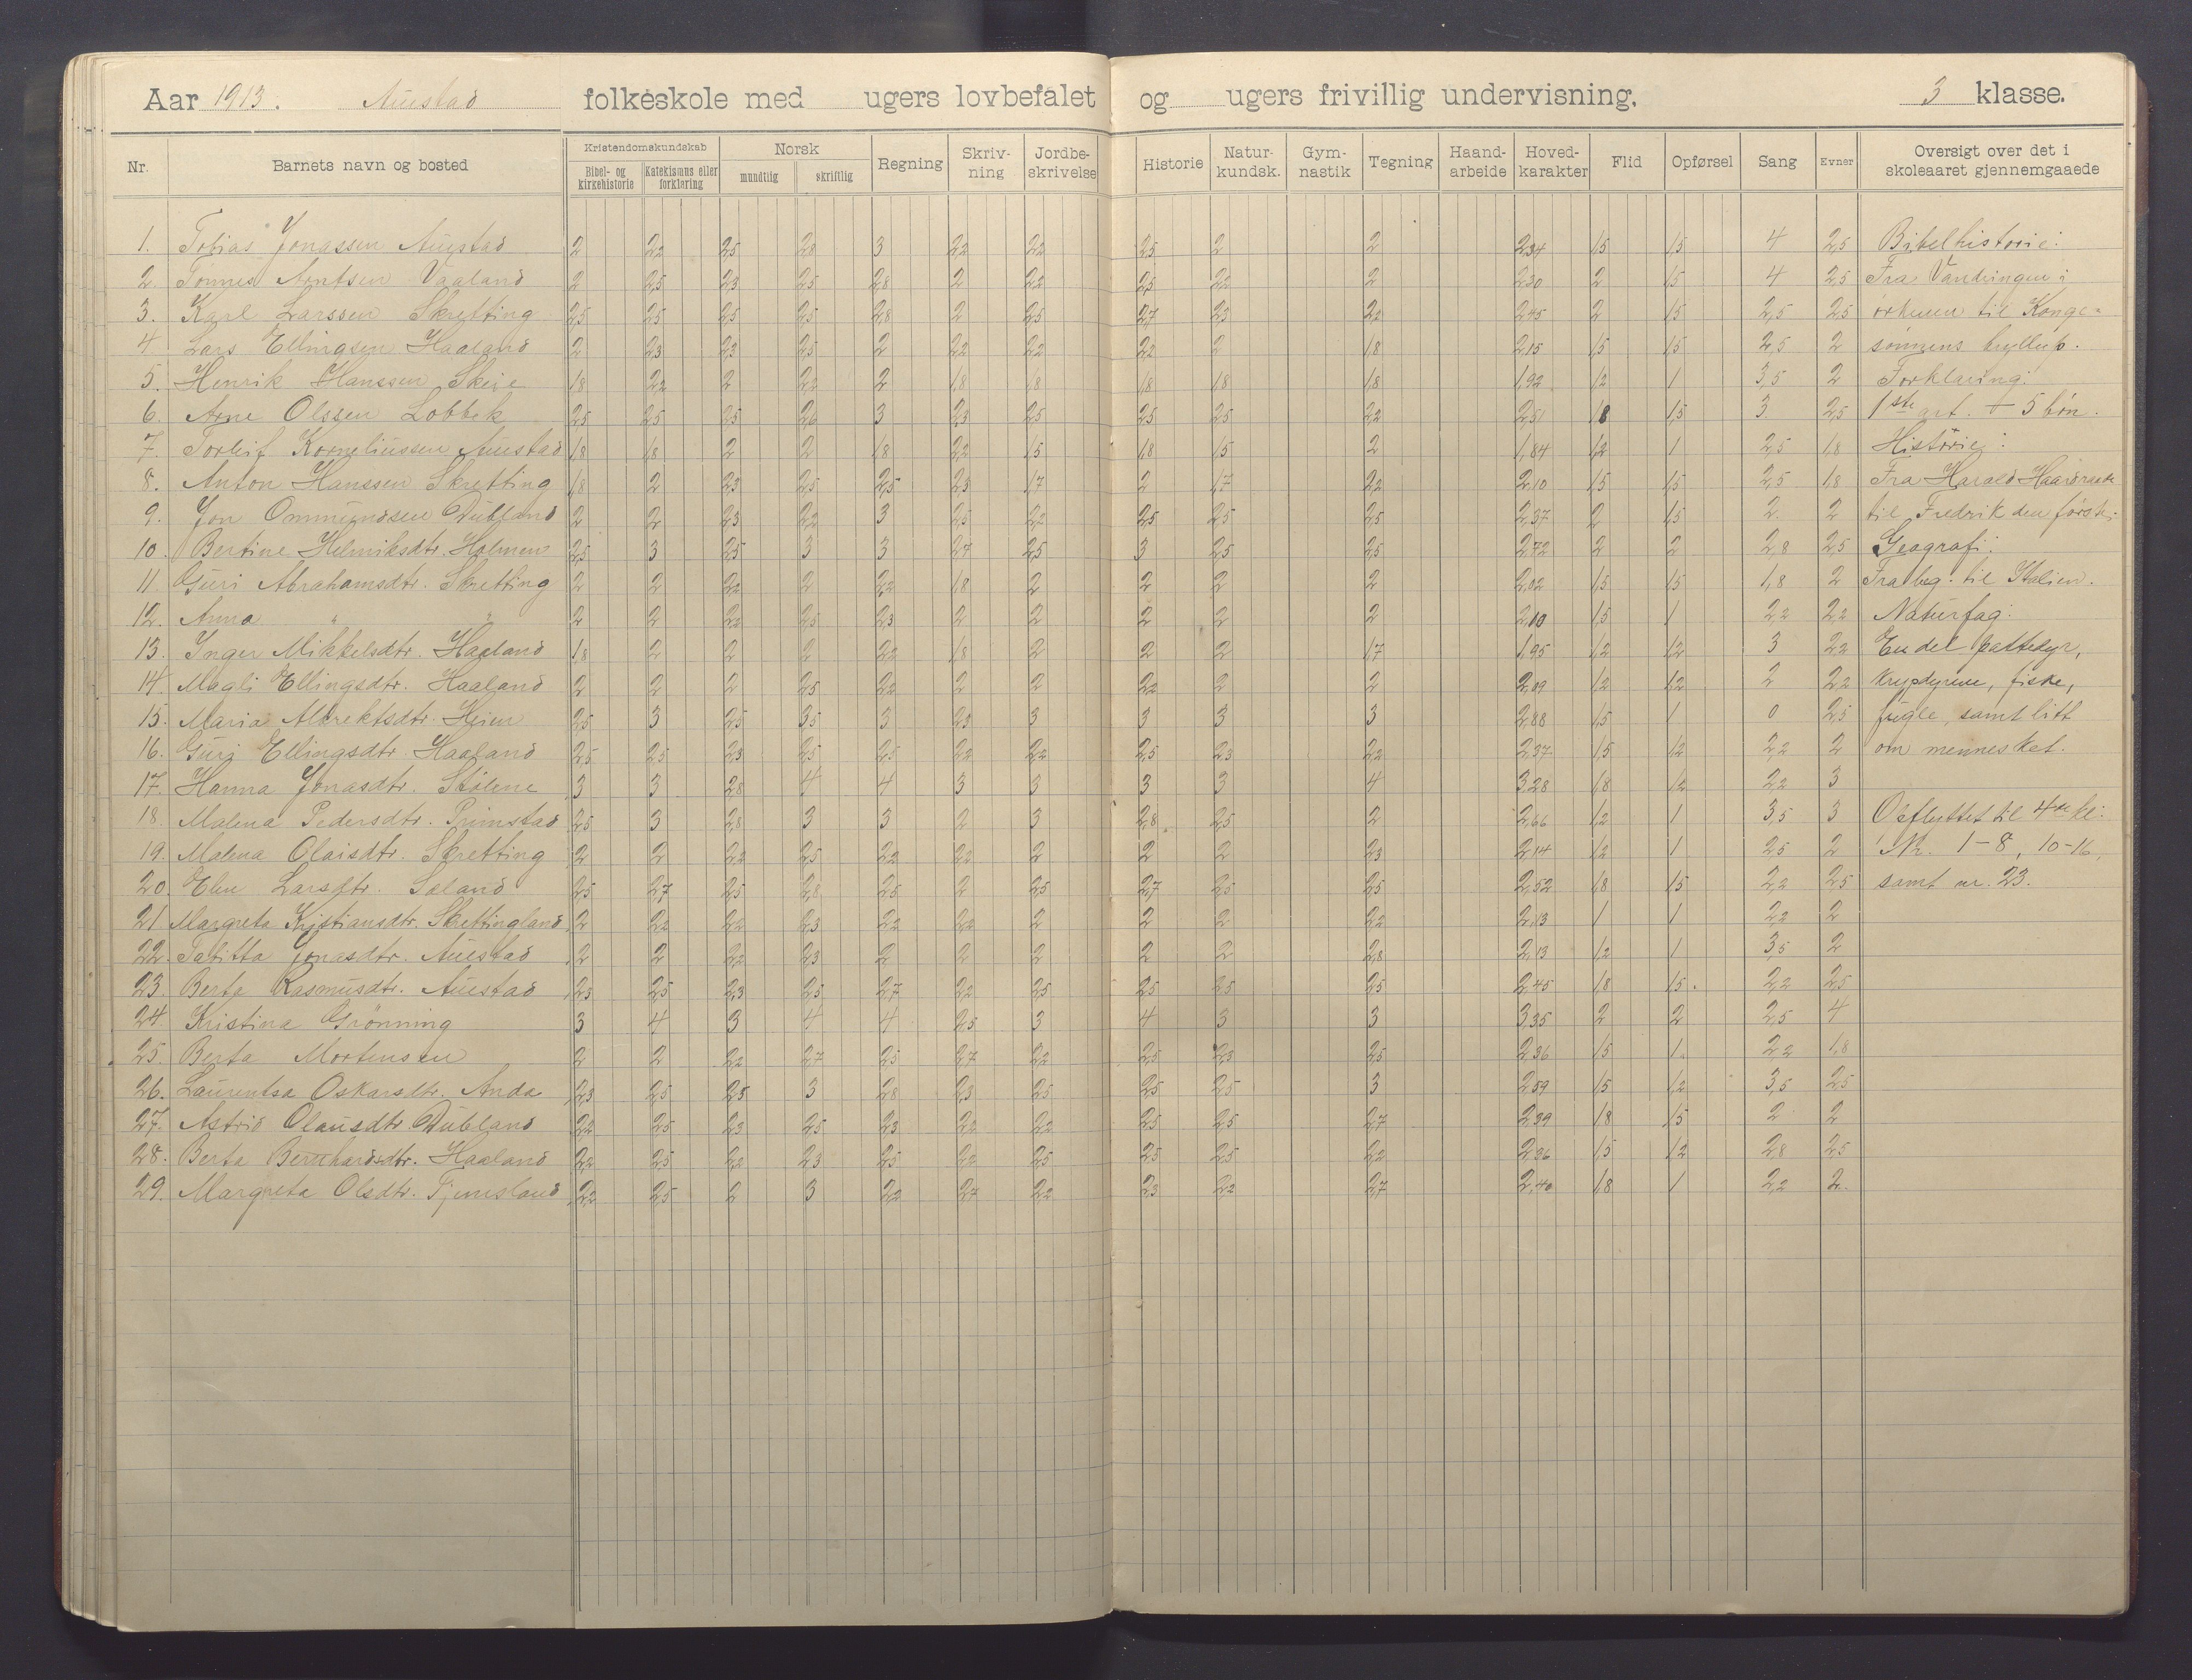 Aar 1913. Austad folkeskole med ugers lovbefalet og ugers frivillig undervisning. 3 klasse.
Nr. Barnets navn og bosted Kristendomskundskab Bibel- og kirkehistorie Katekismus eller forklaring Norsk mundtlig skriftlig Regning Skriv-ning Jordbe-skrivelse Historie Natur-kundsk. Gym-nastik Tegning Haand-arbeide Hoved-karakter Flid Opførsel Sang Evner Oversigt over det i skoleaaret gjennemgaaede
1. Tobias Jonassen Austad 2 2,2 2,5 2,8 3 2,2 2,2 2,5 2 2 2,34 1,5 1,5 4 2,5 Bibelhistorie:
2. Tønnes Arntsen Vaaland 2 2,5 2,3 2,5 2,8 2 2,2 2,5 2,2 2 2,30 2 1,5 4 2,5 Fra Vandringen i
3. Karl Larssen Skretting 2,5 2,5 2,5 2,5 2,8 2 2,5 2,7 2,3 2,2 2,45 2 1,5 2,5 2,5 ørkenen til Konge-
4. Lars Ellingsen Haaland 2 2,3 2,3 2,5 2 2,2 2,2 2,2 2 1,8 2,15 1,5 1,5 2,5 2 sønnens bryllup.
5. Henrik Hanssen Skeie 1,8 2,2 2 2,2 2 1,8 1,8 1,8 1,8 1,8 1,92 1,2 1 3,5 2 Forklaring:
6. Arne Olssen Lobbek 2,5 2,5 2,5 2,6 3 2,3 2,5 2,5 2,5 2,2 2,51 1,8 1,5 3 2,5 1ste art. + 5 bøn.
7. Torleif Korneliussen Austad 1,8 1,8 2 2 1,8 2,2 1,5 1,8 1,5 2 1,84 1,2 1 2,5 1,8 Historie:
8. Anton Hanssen Skretting 1,8 2 2,3 2,5 2,5 2,3 1,7 2 1,7 2,2 2,10 1,5 1,5 2,5 1,8 Fra Harald Haardraade
9. Jon Ommundsen Dubland 2 2 2,3 2,2 3 2,5 2,2 2,5 2,5 2,5 2,37 2 1,5 2 2 til Fredrik den første.
10. Bertine Helmiksdtr. Holmen 2,5 3 2,5 3 3 2,7 2,5 3 2,5 2,5 2,72 2 2 2,8 2,5 Geografi:
11. Guri Abrahamsdtr. Skretting 2 2 2,2 2 2,2 1,8 2 2 2 2 2,02 1,5 1,5 1,8 2 Fra beg. til Italien.
12. Anna " " 2 2 2,2 2,5 2,3 2 2 2 2 2 2,10 1,5 1 2,2 2,2 Naturfag:
13. Inger Mikkelsdtr. Haaland 1,8 2 2 2 2,2 1,8 2 2 2 1,7 1,95 1,2 1,2 3 2,2 En del pattedyr,
14. Magli Ellingsdtr. Haaland 2 2 2 2,5 2,2 2 2 2,2 2 2 2,09 1,2 1,2 2 2,2 krypdyrene, fiske,
15. Maria Albrektsdtr. Heien 2,5 3 2,5 3,5 3 2,3 3 3 3 3 2,88 1,5 1 0 2,5 fugle, samt litt
16. Guri Ellingsdtr. Haaland 2,5 2,5 2,3 2,5 2,5 2,2 2,2 2,5 2,3 2,2 2,37 1,5 1,2 2,2 2 om mennesket.
17. Hanna Jonasdtr. Stølene 3 3 2,8 4 4 3 3 3 3 4 3,28 1,8 1,2 2,2 3
18. Malena Pedersdtr. Primstad 2,5 3 2,8 3 3 2 3 2,8 2,5 2 2,66 1,2 1 3,5 3 Opflyttet til 4de kl:
19. Malena Olaisdtr. Skretting 2 2 2,2 2,5 2,2 2,2 2 2 2 2,3 2,14 1,2 1 2,5 2 Nr. 1-8, 10-16,
20. Elen Larsdtr. Sæland 2,5 2,7 2,5 2,8 2,5 2 2,5 2,7 2,5 2,5 2,52 1,8 1,5 2,2 2,5 samt nr. 23.
21 Margreta Kristiansdtr. Skrettingland 2 2,2 2,2 2,3 2,2 2,2 2 2 2 2,2 2,13 1 1 2,2 2
22. Tabitta Jonasdtr. Austad 2 2 2,2 2,3 2 2 2 2 2 2,8 2,13 1,2 1 3,5 2
23. Berta Rasmusdtr. Austad 2,3 2,5 2,3 2,5 2,7 2,2 2,5 2,5 2,5 2,5 2,45 1,8 1,5 2,2 2,5
24 Kristina Grønning 3 4 3 4 4 2,5 3 4 3 3 3,35 2 2 2,5 4
25. Berta Mortensen 2 2 2,2 2,7 2,5 2,7 2,2 2,5 2,3 2,5 2,36 1,5 1 2,2 1,8
26. Laurentsa Oskarsdtr. Anda 2,3 2,5 2,5 3 2,8 2,3 2,5 2,5 2,5 3 2,59 1,5 1,2 3,5 2,5
27. Astrid Olausdtr. Dubland 2,2 2,5 2,3 2,5 2,3 2,2 2,2 2,5 2,5 2,7 2,39 1,8 1,5 2 2
28. Berta Bernhardsdtr. Haaland 2,2 2,5 2,2 2,3 2,5 2,2 2,5 2,5 2,5 2,2 2,36 1,5 1,2 2,8 2,5
29. Margreta Olsdtr. Tjemsland 2,2 2,5 2 3 2,2 2,7 2,2 2,3 2,2 2,7 2,40 1,8 1 2,2 2